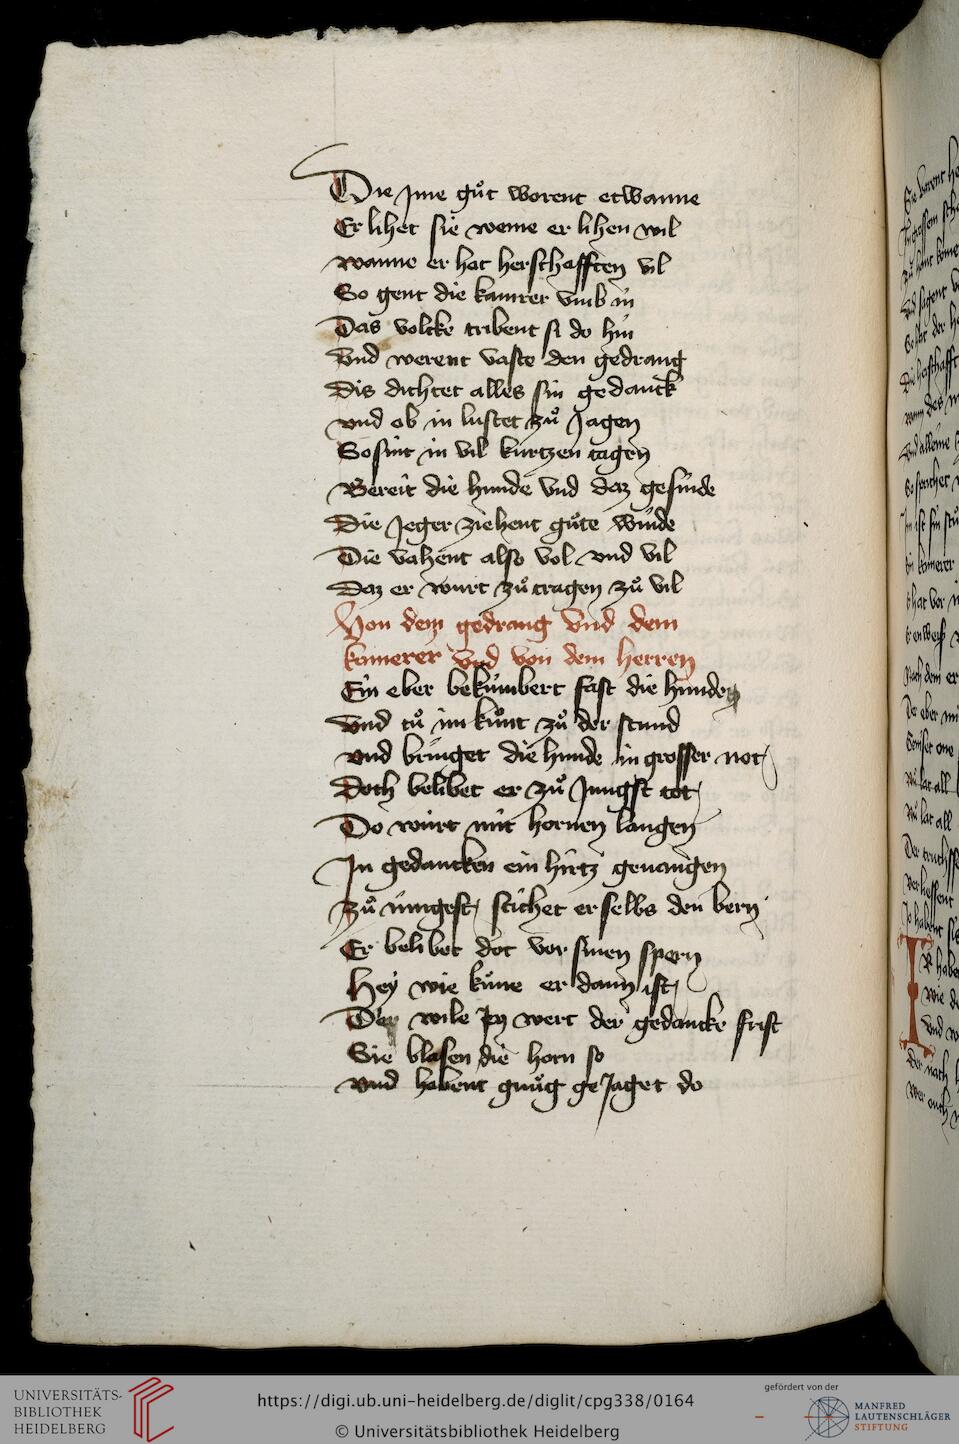 Die jme guͦt worent etwanne
Er lihet sie weme er lihen wil
wanne er hat herschafften vil
So gent die kamrer vmb in
Das volcke tribent si do hin
Vnd werent vaste den gedrang
Dis dichtet alles sin gedanck
vnd ob in lustet zuͦ Jagen
So sint in vil kurtzen tagen
Bereit die hunde vnd daz gesinde
Die Jeger ziehent guͦte winde
Die vahent also vol vnd vil
Daz er wurt zuͦ tragen zuͦ vil
Von dem gedrang vnd dem
kamerer vnd von dem herren
Ein eber bekumbert fast die hunde
Vnd tuͦ im kunt zuͦ der stund
vnd bringet die hunde in grosser not
Doch belibet er zuͦ Jungst tot
Do wurt mit hornen langen
In gedancken ein hirtz geuangen
zuͦ jungest stichet er selbs den bern
Er belibet dot vor sinen spern
Hey wie kune er dann ist
Der wile Jn wert der gedancke frist
Sie blasen die horn so
vnd habent gnuͦg geJaget do
UNIVERSITÄTS-
BIBLIOTHEK
HEIDELBERG
https://digi.ub.uni-heidelberg.de/diglit/cpg338/0164
© Universitätsbibliothek Heidelberg
gefördert von der
MANFRED
LAUTENSCHLÄGER
STIFTUNG